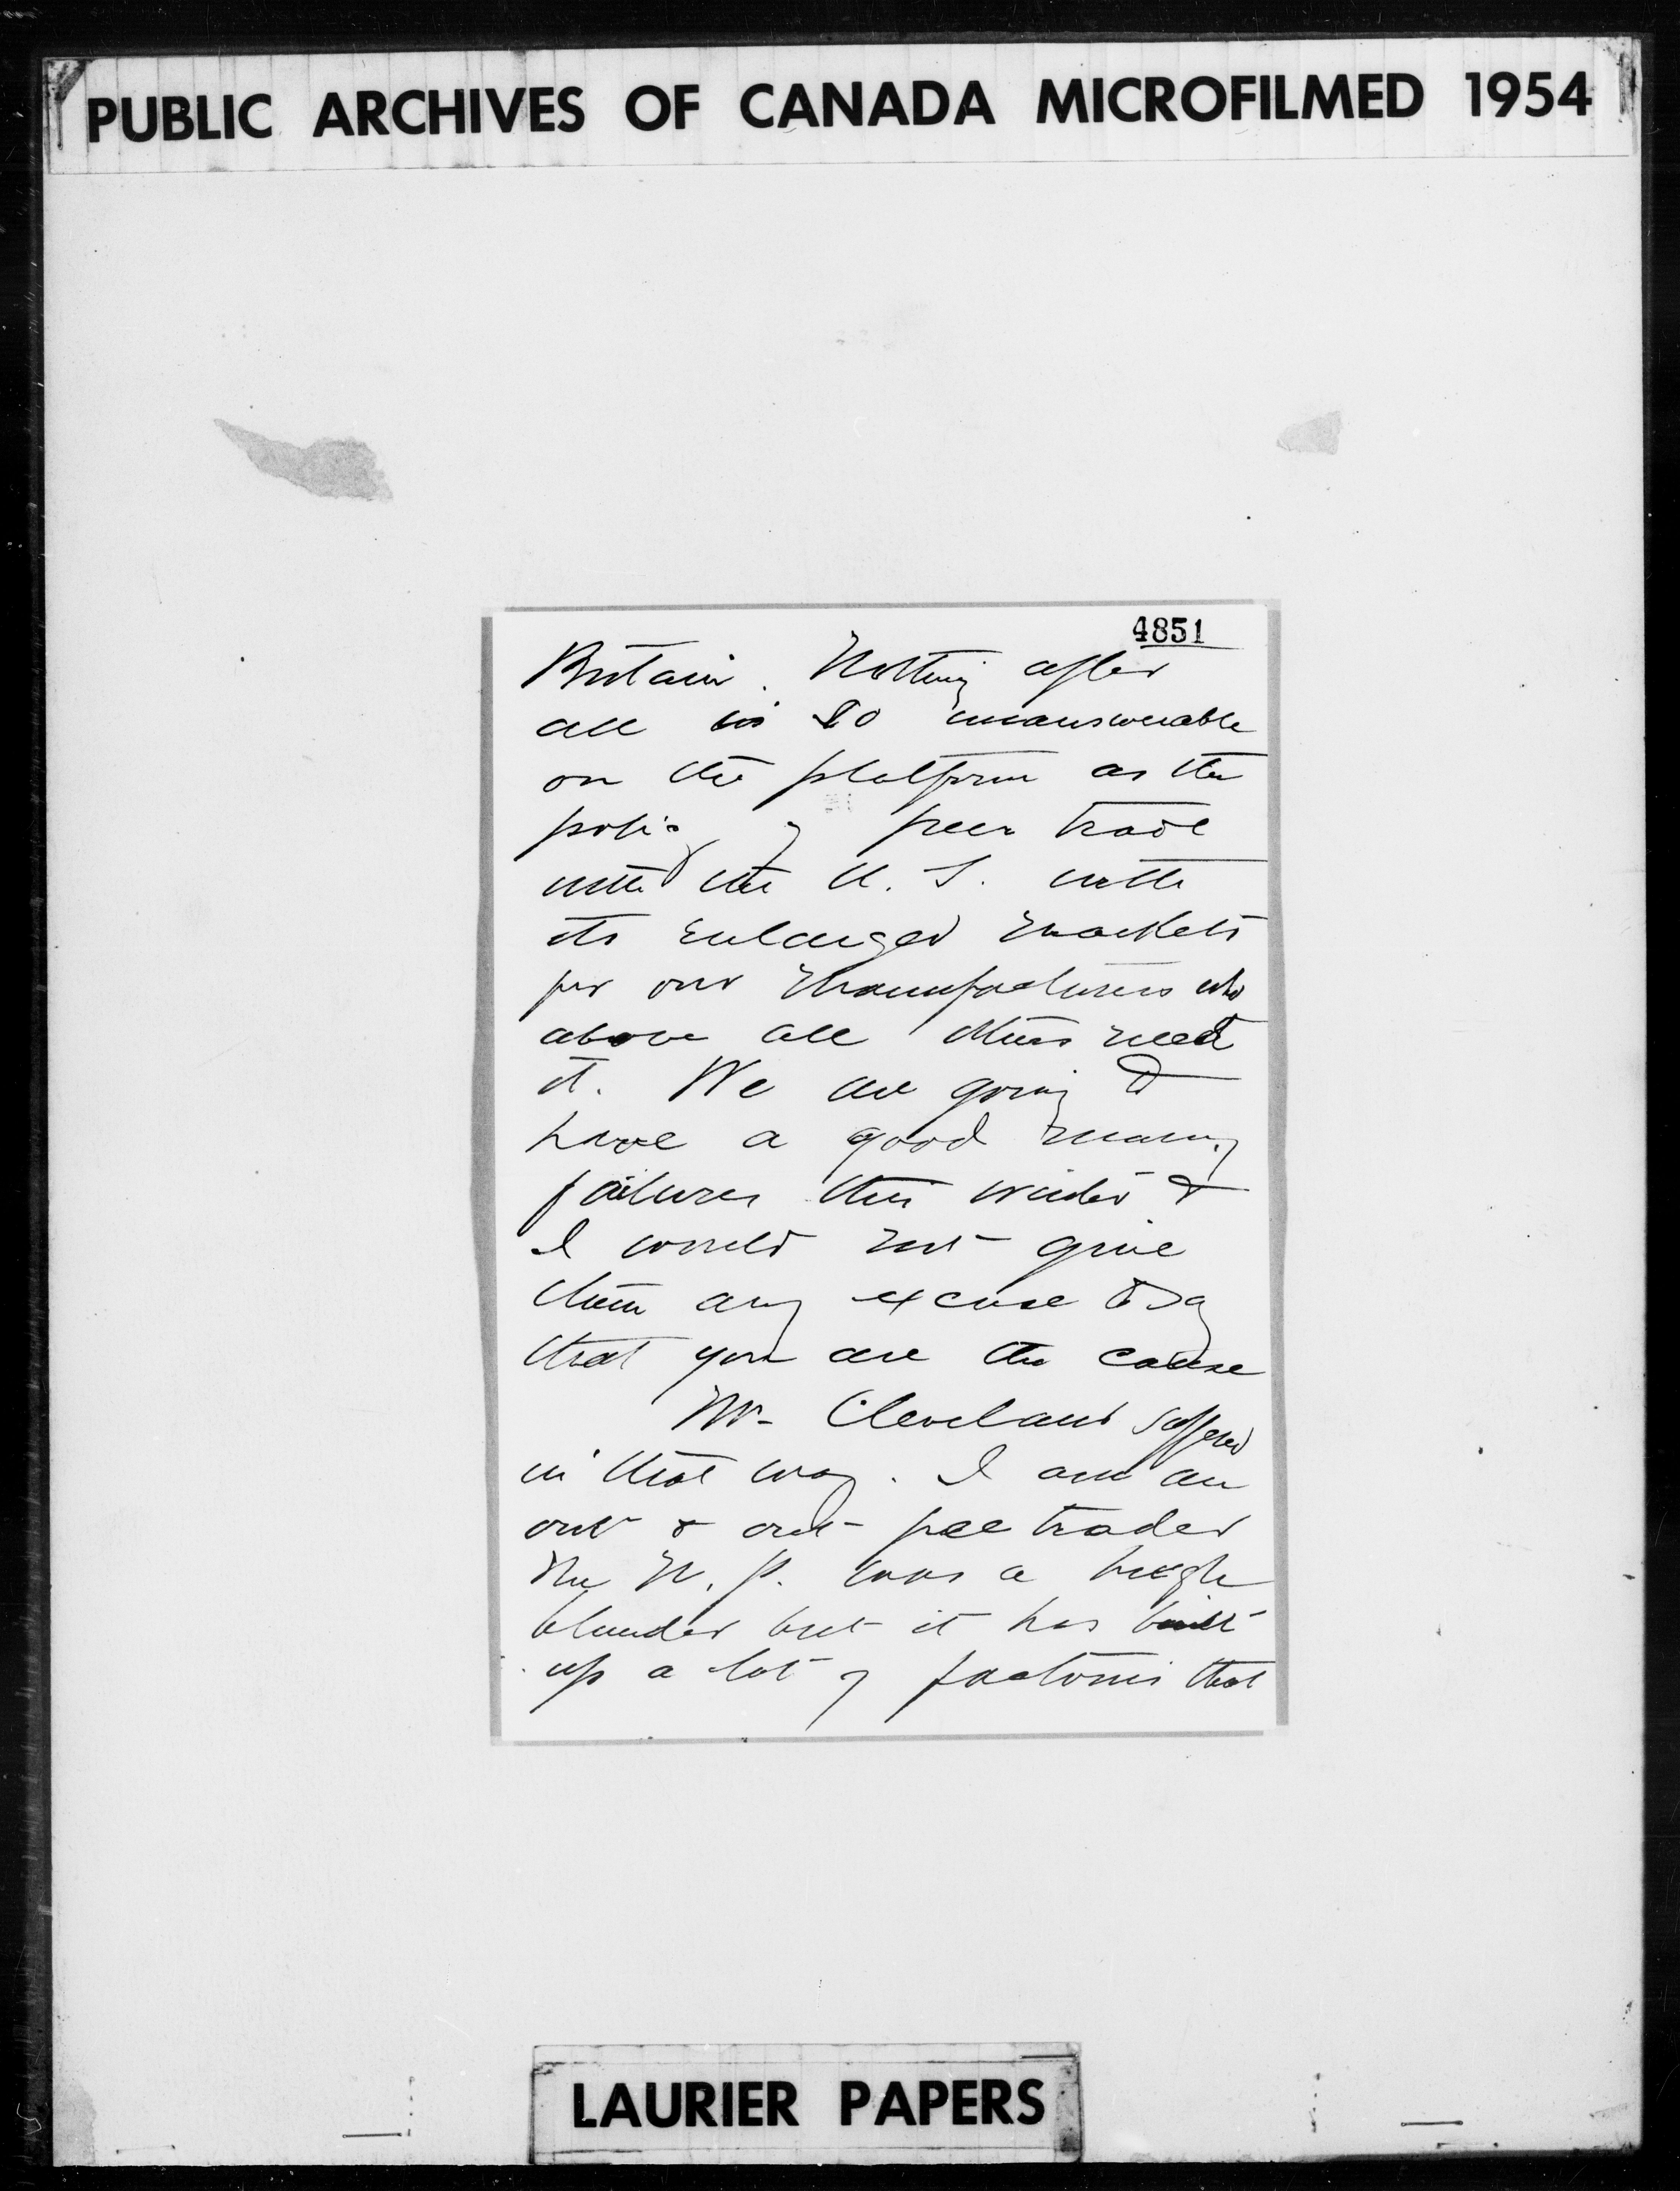 PUBLIC ARCHIVES OF CANADA MICROFILMED 1954
4851
Britain. Nothing after
all is so unanswerable
on the platform as the
policy of freer trade
with the U. S. with
its enlarged markets
for our Manufacturers who
above all others need
it. We are going to
have a good many
failures this winter &
I would not give
them any excuse to say
that you are the cause
Mr- Cleveland suffered
in that way. I am an
out & out free trader
The N. P. was a huge
blunder but it has built
up a lot of factories that
LAURIER PAPERS